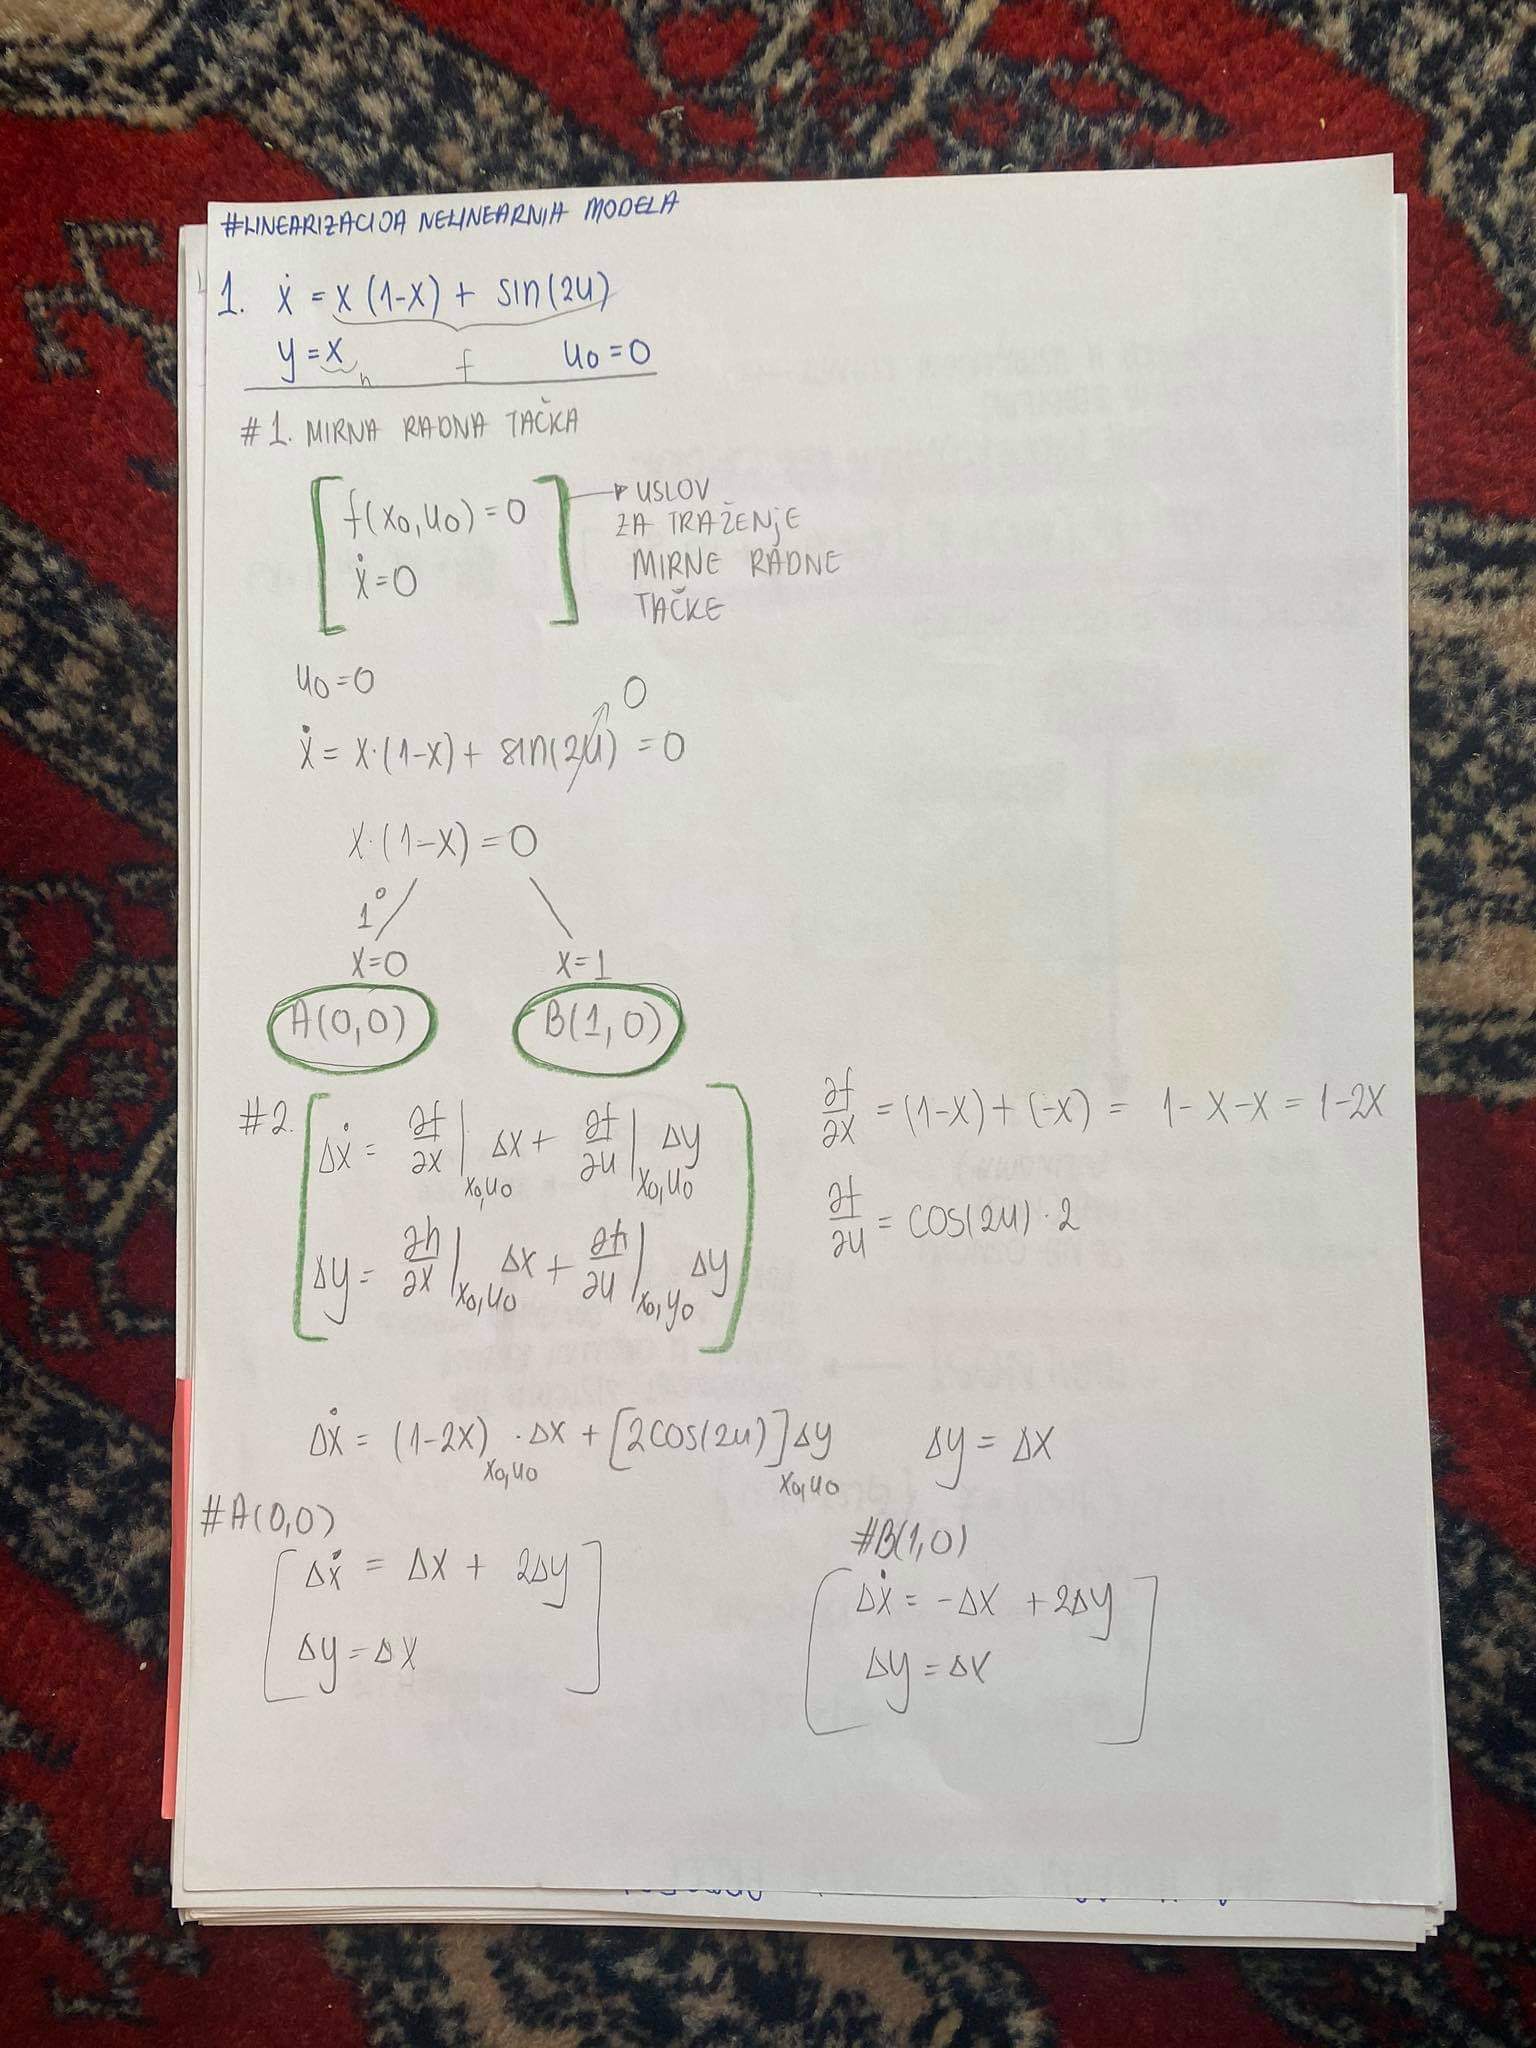 #LINEARIZACIJA NELINEARNIH MODELA
1. ẋ = x (1-x) + sin(2u)
y = x u0 = 0
h f
#1. MIRNA RADNA TAČKA
f(x0, u0) = 0
ẋ = 0
→ USLOV
ZA TRAŽENJE
MIRNE RADNE
TAČKE
u0 = 0
0
ẋ = x·(1-x) + sin(2u) = 0
x·(1-x) = 0
1°
x=0 x=1
A(0,0) B(1,0)
#2. Δẋ = ∂f/∂x |x0,u0 Δx + ∂f/∂u |x0,u0 Δy
Δy = ∂h/∂x |x0,u0 Δx + ∂h/∂u |x0,y0 Δy
∂f/∂x = (1-x) + (-x) = 1-x-x = 1-2x
∂f/∂u = cos(2u)·2
Δẋ = (1-2x)x0,u0 · Δx + [2cos(2u)]x0,u0 Δy Δy = Δx
#A(0,0)
Δẋ = Δx + 2Δy
Δy = Δx
#B(1,0)
Δẋ = -Δx + 2Δy
Δy = Δx